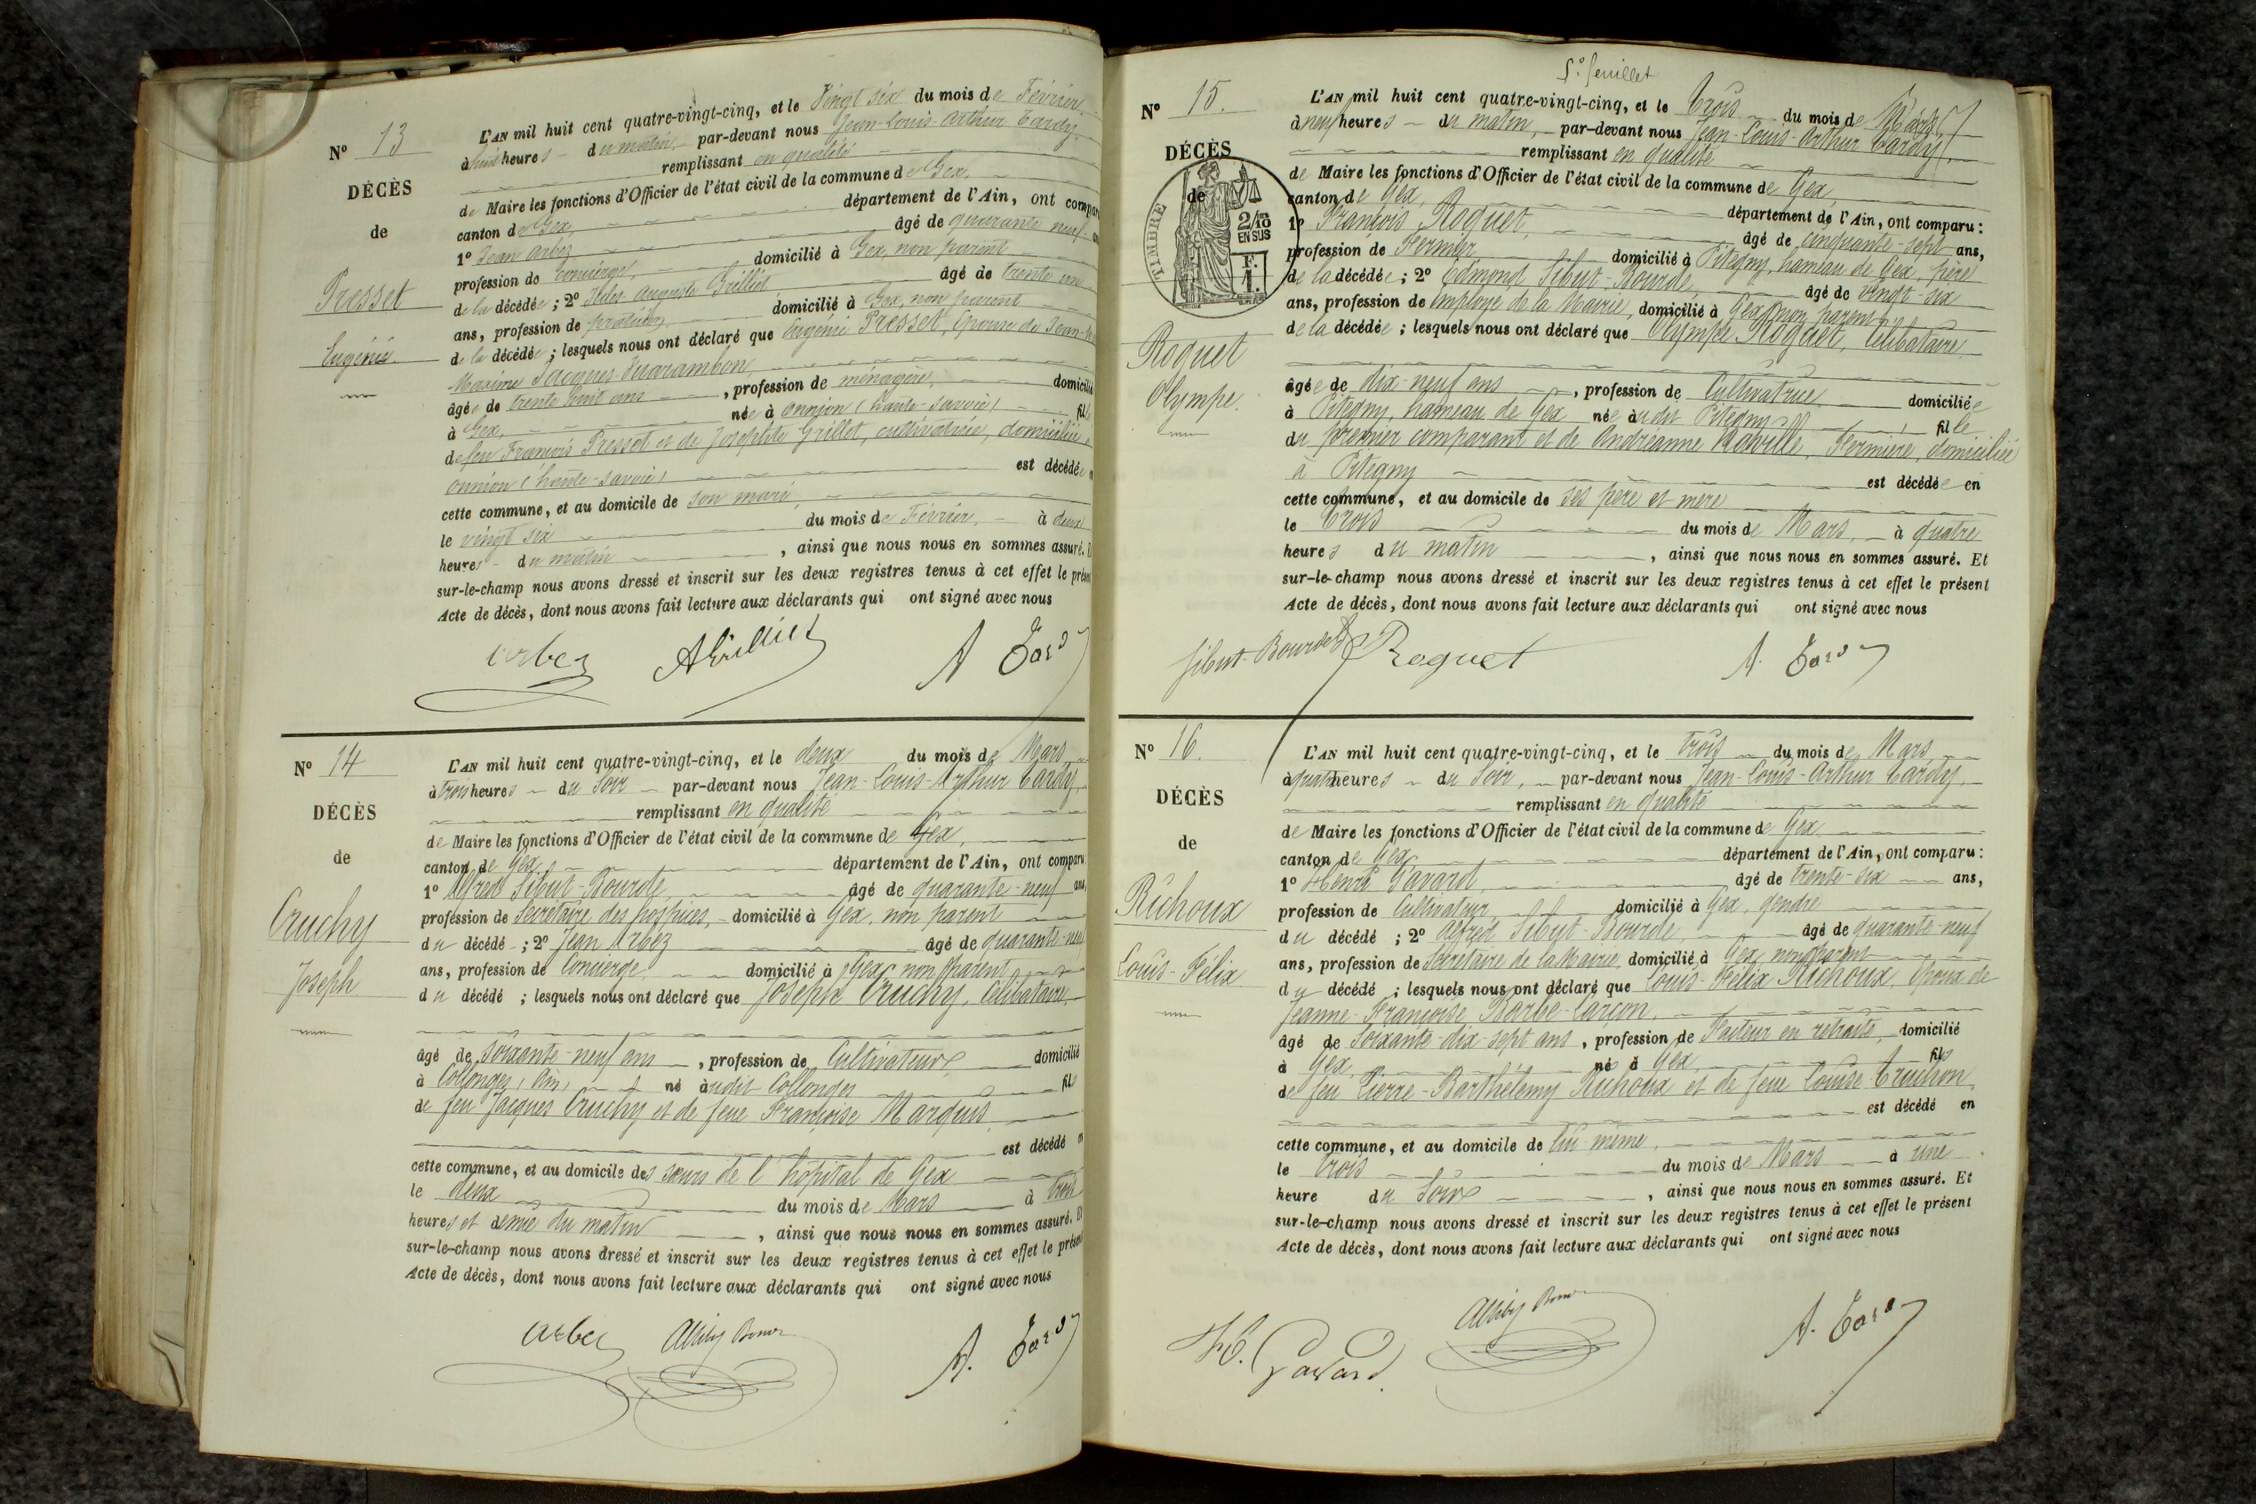 N° 13
DÉCÈS
de
Presset
Eugénie
L'AN mil huit cent quatre-vingt-cinq, et le Vingt six du mois de Février
à heures du matin, par-devant nous Jean-Louis-Arthur Tardy
remplissant en qualité
de Maire les fonctions d'Officier de l'état civil de la commune de Gex,
canton de Gex, département de l'Ain, ont compar
1° Jean Arbez âgé de quarante neuf
profession de Concierge, domicilié à Gex, non parent
de la décédée ; 2° Jules Auguste Grilliet âgé de trente un
ans, profession de praticien domicilié à Gex, non parent
de la décédée ; lesquels nous ont déclaré que Eugénie Presset, Epouse de Jean
Maxime Jacques
âgée de trente huit ans, profession de ménagère, domicilié
à Gex, née à Onnion (haute-savoie) fil
de feu François Presset et de Josephte Grillet, cultivatrice, domiciliée à
Onnion (haute-savoie) est décédée
cette commune, et au domicile de son mari,
le vingt six du mois de Février, à deux
heures du matin, ainsi que nous nous en sommes assuré. E
sur-le-champ nous avons dressé et inscrit sur les deux registres tenus à cet effet le présen
Acte de décès, dont nous avons fait lecture aux déclarants qui ont signé avec nous
Arbez AGrilliet A Tardy
N° 14
DÉCÈS
de
Cruchy
Joseph
L'AN mil huit cent quatre-vingt-cinq, et le deux du mois de Mars
à trois heures du soir par-devant nous Jean-Louis-Arthur Tardy,
remplissant en qualité
de Maire les fonctions d'Officier de l'état civil de la commune de Gex,
canton de Gex, département de l'Ain, ont comparu
1° Alfred Sibut-Bourde, âgé de quarante-neuf ans,
profession de Secrétaire des hospices, domicilié à Gex, non parent
du décédé ; 2° Jean Arbez âgé de quarante-neuf
ans, profession de Concierge domicilié à Gex, non parent
du décédé ; lesquels nous ont déclaré que Joseph Cruchy, Célibataire,
âgé de soixante-neuf ans, profession de Cultivateur, domicilié
à Collonges, (Ain) né audit Collonges fils
de feu Jacques Cruchy et de feue Françoise Marquis,
est décédé
cette commune, et au domicile des sœurs de l'hôpital de Gex
le deux du mois de Mars à trois
heures et demie du matin, ainsi que nous nous en sommes assuré. E
sur-le-champ nous avons dressé et inscrit sur les deux registres tenus à cet effet le présen
Acte de décès, dont nous avons fait lecture aux déclarants qui ont signé avec nous
Arbez A. Tardy
5° feuillet
N° 15.
DÉCÈS
de
TIMBRE
2/10
EN SUS
F.
1.
Roquet
Olympe.
L'AN mil huit cent quatre-vingt-cinq, et le Trois du mois de Mars,
à neuf heures du matin, par-devant nous Jean-Louis-Arthur Tardy,
remplissant en qualité
de Maire les fonctions d'Officier de l'état civil de la commune de Gex,
canton de Gex, département de l'Ain, ont comparu :
1° François Roquet, âgé de cinquante-sept ans,
profession de Fermier domicilié à Pitegny, hameau de Gex, père
de la décédée ; 2° Edmond Sibut-Bourde, âgé de vingt-six
ans, profession de Employé de la Mairie, domicilié à Gex, non parent
de la décédée ; lesquels nous ont déclaré que Olympe Roquet, Célibataire
âgée de dix-neuf ans, profession de Cultivatrice domiciliée
à Pitegny, hameau de Gex née audit Pitegny, fille
du premier comparant et de Andréanne, Fermière, domiciliée
à Pitegny est décédée en
cette commune, et au domicile de ses père et mère
le Trois du mois de Mars, à quatre
heures du matin, ainsi que nous nous en sommes assuré. Et
sur-le-champ nous avons dressé et inscrit sur les deux registres tenus à cet effet le présent
Acte de décès, dont nous avons fait lecture aux déclarants qui ont signé avec nous
Sibut-Bourde Roquet A. Tardy
N° 16.
DÉCÈS
de
Richoux
Louis-Félix
L'AN mil huit cent quatre-vingt-cinq, et le Trois du mois de Mars,
à quatre heures du Soir, par-devant nous Jean-Louis-Arthur Tardy,
remplissant en qualité
de Maire les fonctions d'Officier de l'état civil de la commune de Gex
canton de Gex, département de l'Ain, ont comparu :
1° Henri Gavard, âgé de trente-six ans,
profession de Cultivateur, domicilié à Gex, gendre
du décédé ; 2° Alfred Sibut-Bourde âgé de quarante-neuf
ans, profession de Secrétaire de la Mairie, domicilié à Gex, non parent
du décédé ; lesquels nous ont déclaré que Louis-Félix Richoux, Epoux de
Jeanne-Françoise Barbe-Garçon,
âgé de Soixante-dix-sept ans, profession de Facteur en retraite, domicilié
à Gex, né à Gex, fils
de feu Pierre-Barthélemy Richoux et de feue Louise Truchon,
est décédé en
cette commune, et au domicile de lui-même,
le Trois du mois de Mars à une
heure du Soir, ainsi que nous nous en sommes assuré. Et
sur-le-champ nous avons dressé et inscrit sur les deux registres tenus à cet effet le présent
Acte de décès, dont nous avons fait lecture aux déclarants qui ont signé avec nous
Gavard A. Tardy